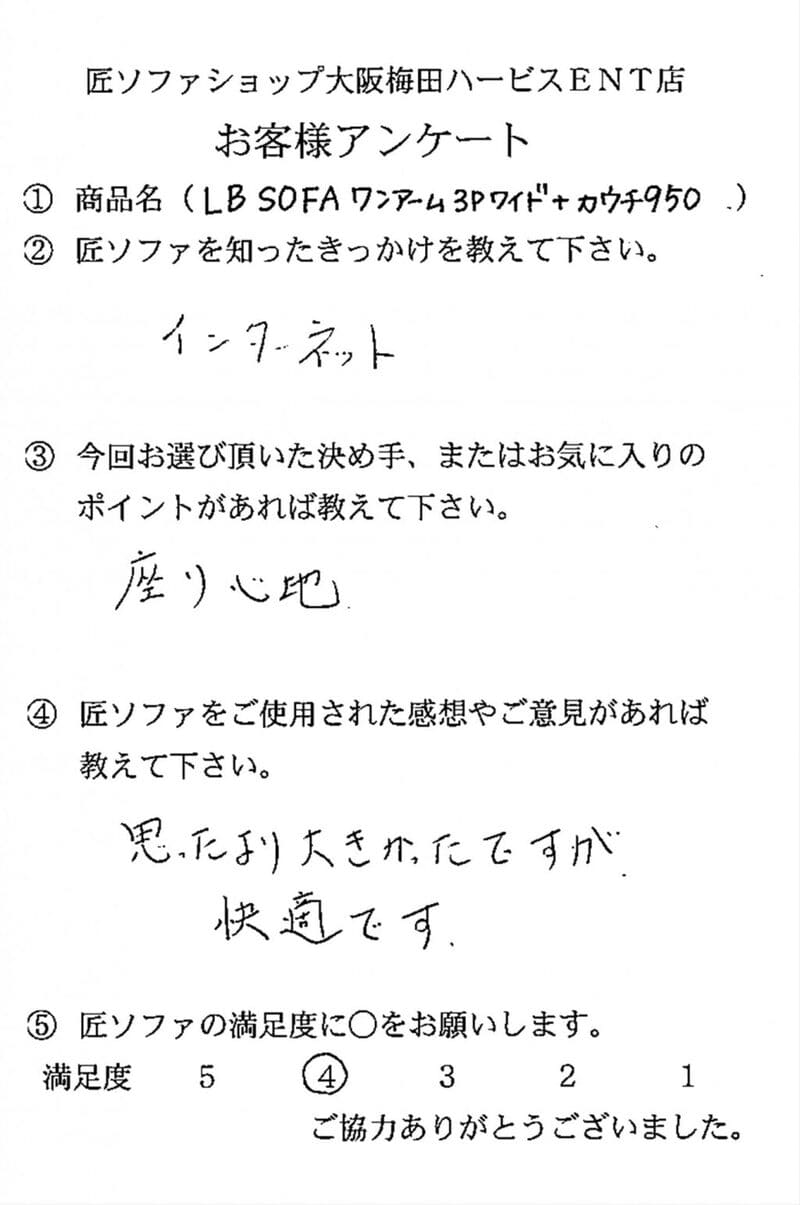 匠ソファショップ大阪梅田ハービスENT店
お客様アンケート
① 商品名（LB SOFA ワンアーム3Pワイド+カウチ950）
② 匠ソファを知ったきっかけを教えて下さい。
インターネット
③ 今回お選び頂いた決め手、またはお気に入りの
ポイントがあれば教えて下さい。
座り心地
④ 匠ソファをご使用された感想やご意見があれば
教えて下さい。
思ったより大きかったですが
快適です.
⑤ 匠ソファの満足度に○をお願いします。
満足度 5 ④ 3 2 1
ご協力ありがとうございました。